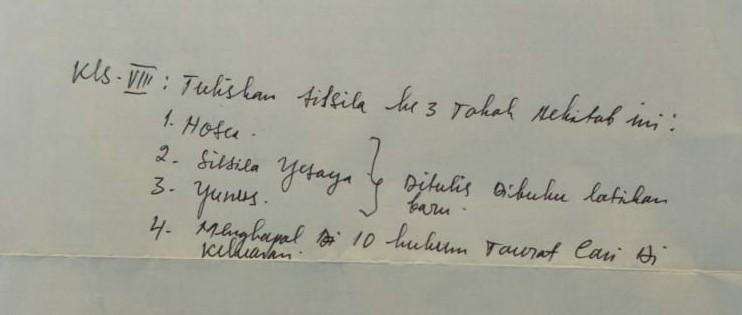 Kls. VIII : Tuliskan silsila ke 3 Tokoh Alkitab ini :
1. Hosea.
2. Silsila Yesaya
3. Yunus. } Ditulis Dibuku latihan
baru.
4. Menghapal Di 10 hukum Taurat Cari Di
Keluaran.